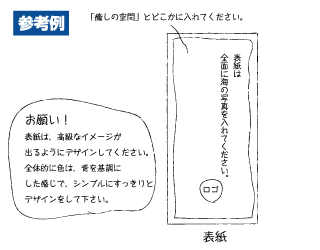 参考例
「癒しの空間」とどこかに入れてください。
表紙は
全面に海の写真を入れてください。
ロゴ
表紙
お願い！
表紙は、高級なイメージが
出るようにデザインしてください。
全体的に色は、青を基調に
した感じで、シンプルにすっきりと
デザインをして下さい。